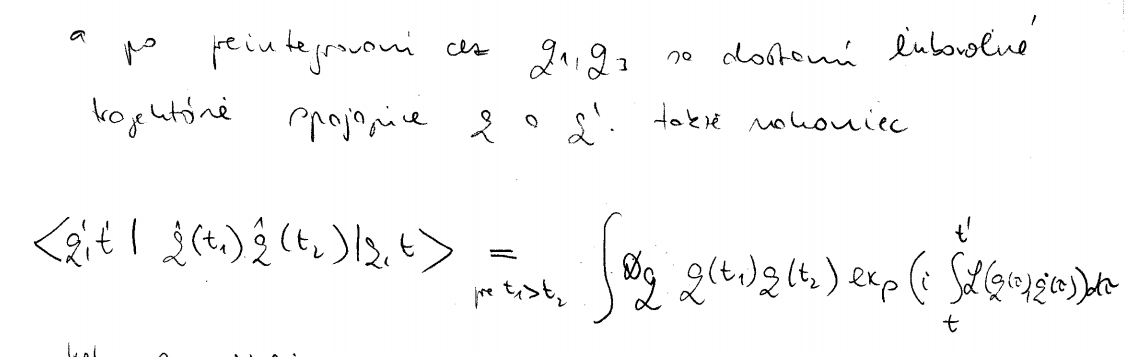 a po preintegrovaní cez q₁, q₃ sa dostaní ľubovolné
trajektórie spojajúce q a q'. takže nakoniec
<q',t'| q̂(t₁) q̂(t₂)|q,t> = pre t₁>t₂ ∫𝒟q q(t₁)q(t₂) exp(i ∫ₜᵗ' ℒ(q(τ),q̇(τ))dτ